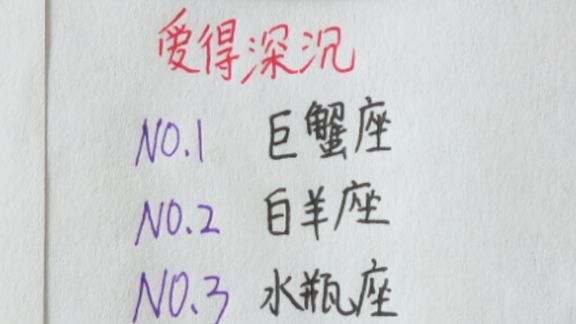 爱得深沉
NO.1 巨蟹座
NO.2 白羊座
NO.3 水瓶座